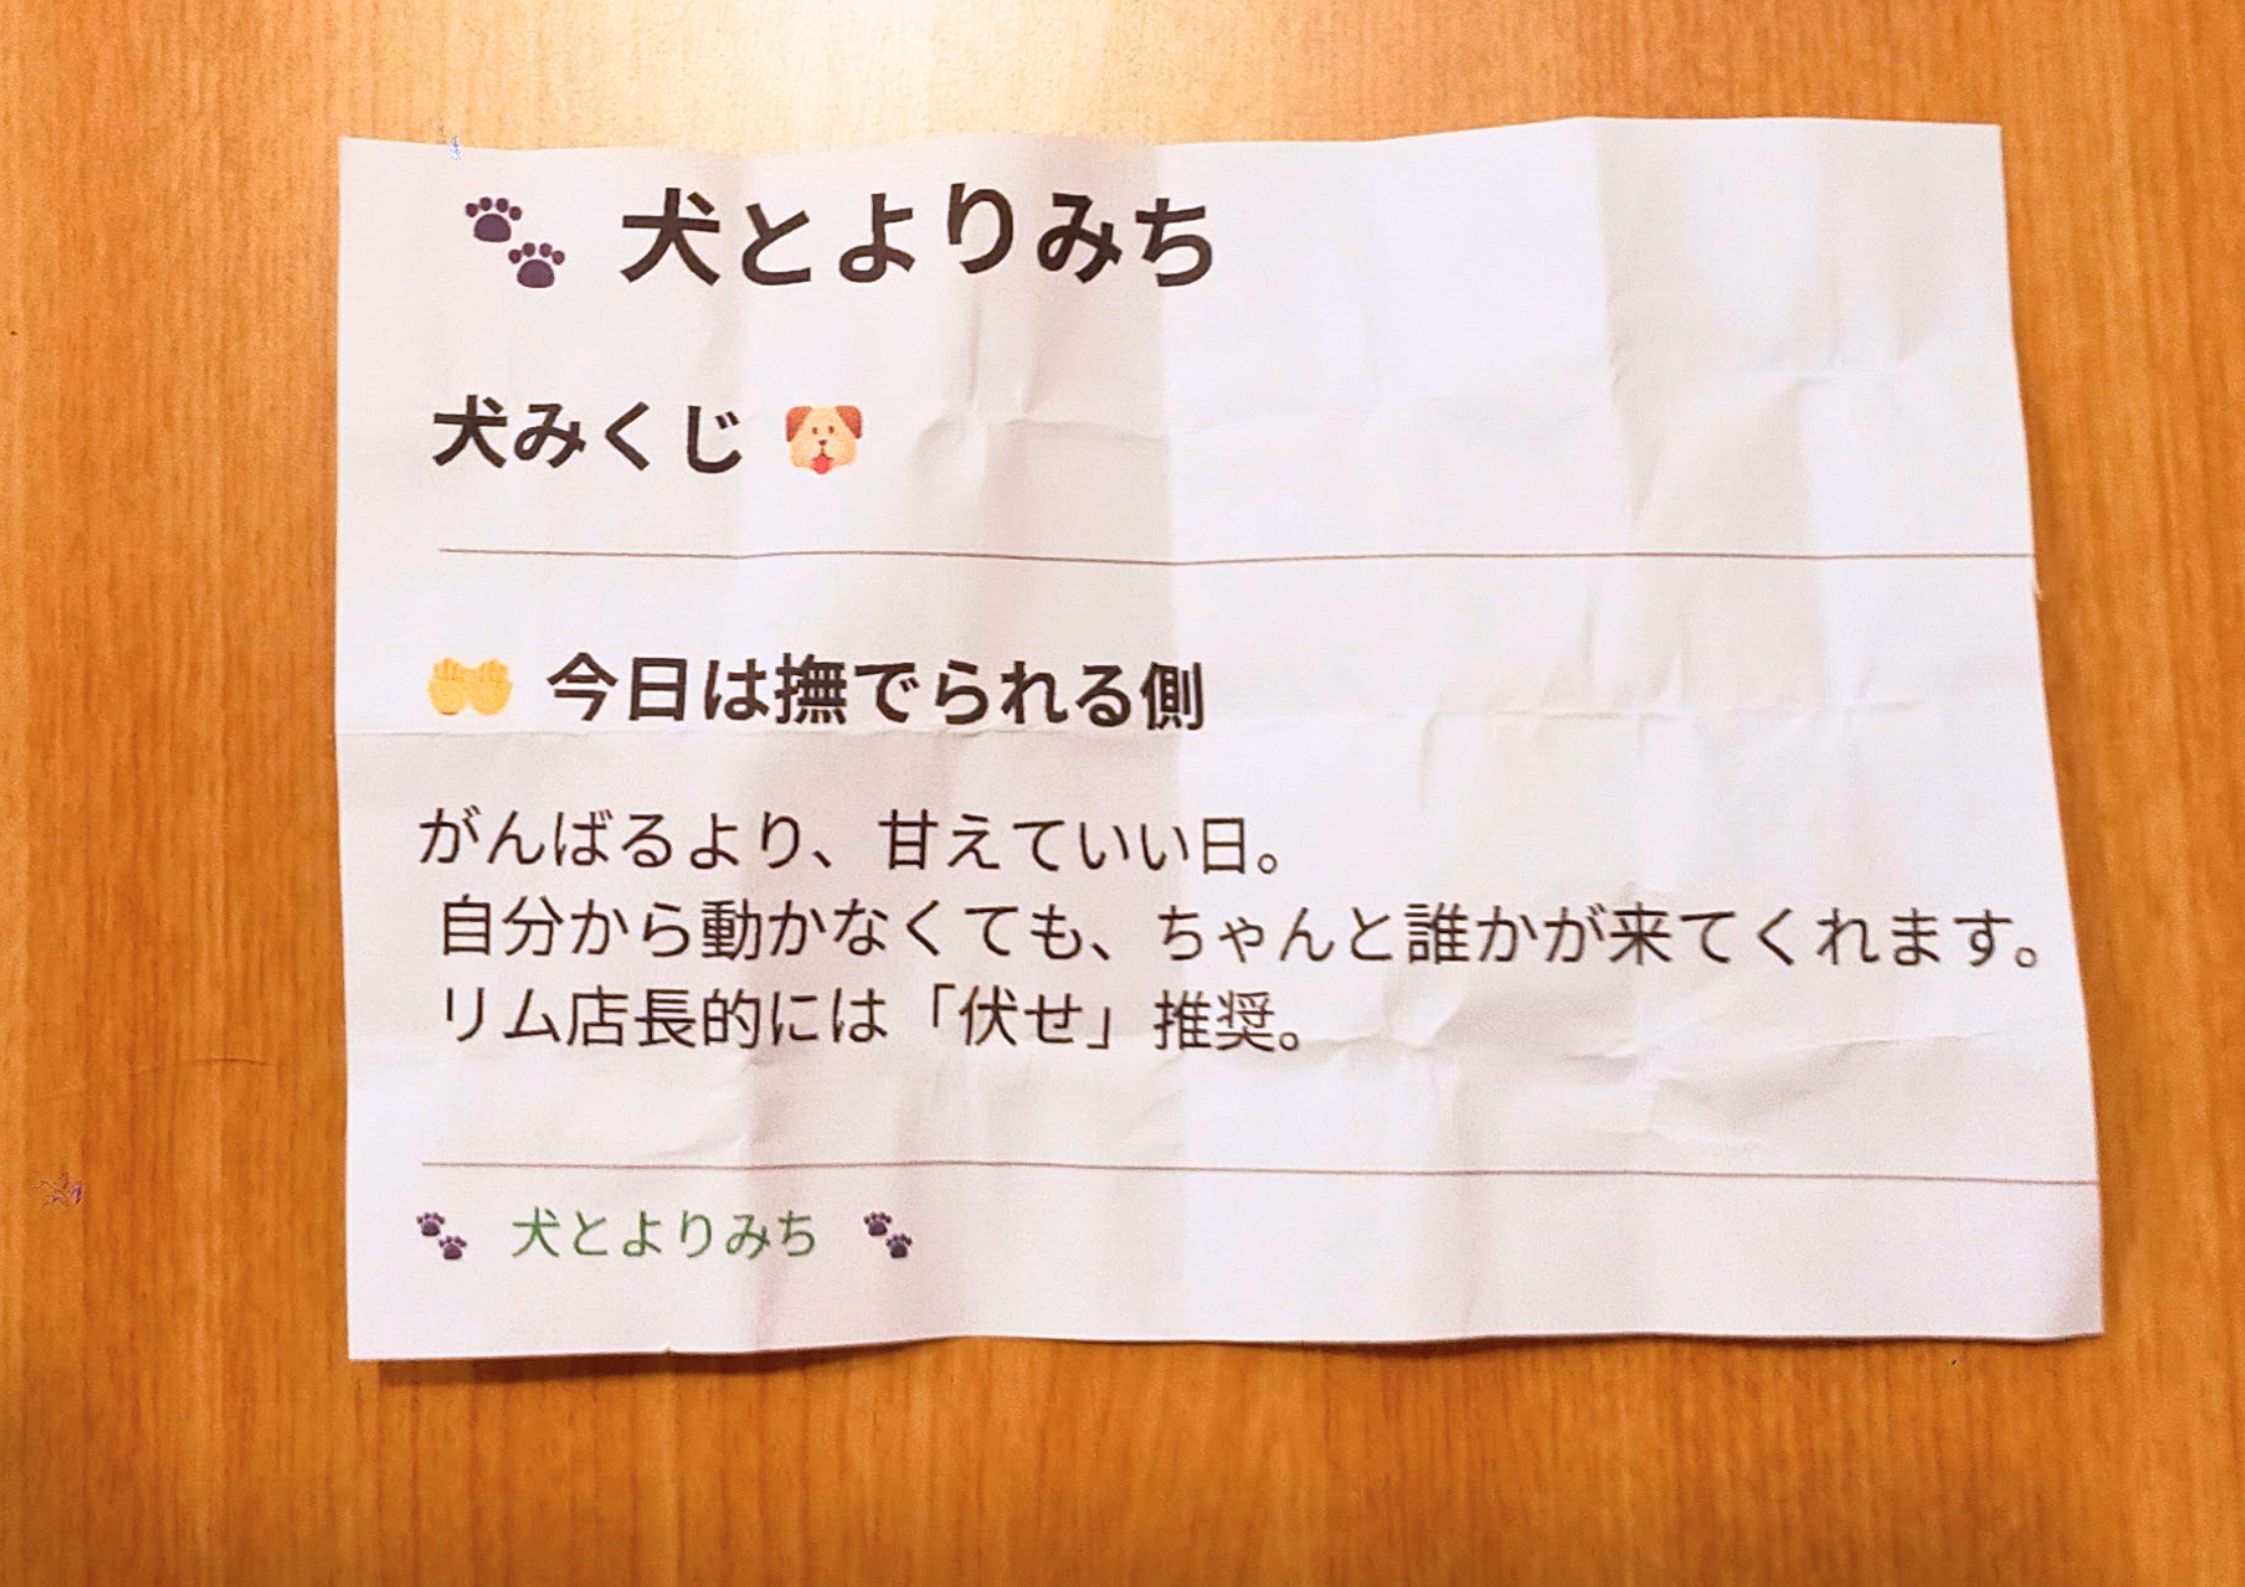 🐾 犬とよりみち
犬みくじ 🐶
🤲 今日は撫でられる側
がんばるより、甘えていい日。
自分から動かなくても、ちゃんと誰かが来てくれます。
リム店長的には「伏せ」推奨。
🐾 犬とよりみち 🐾